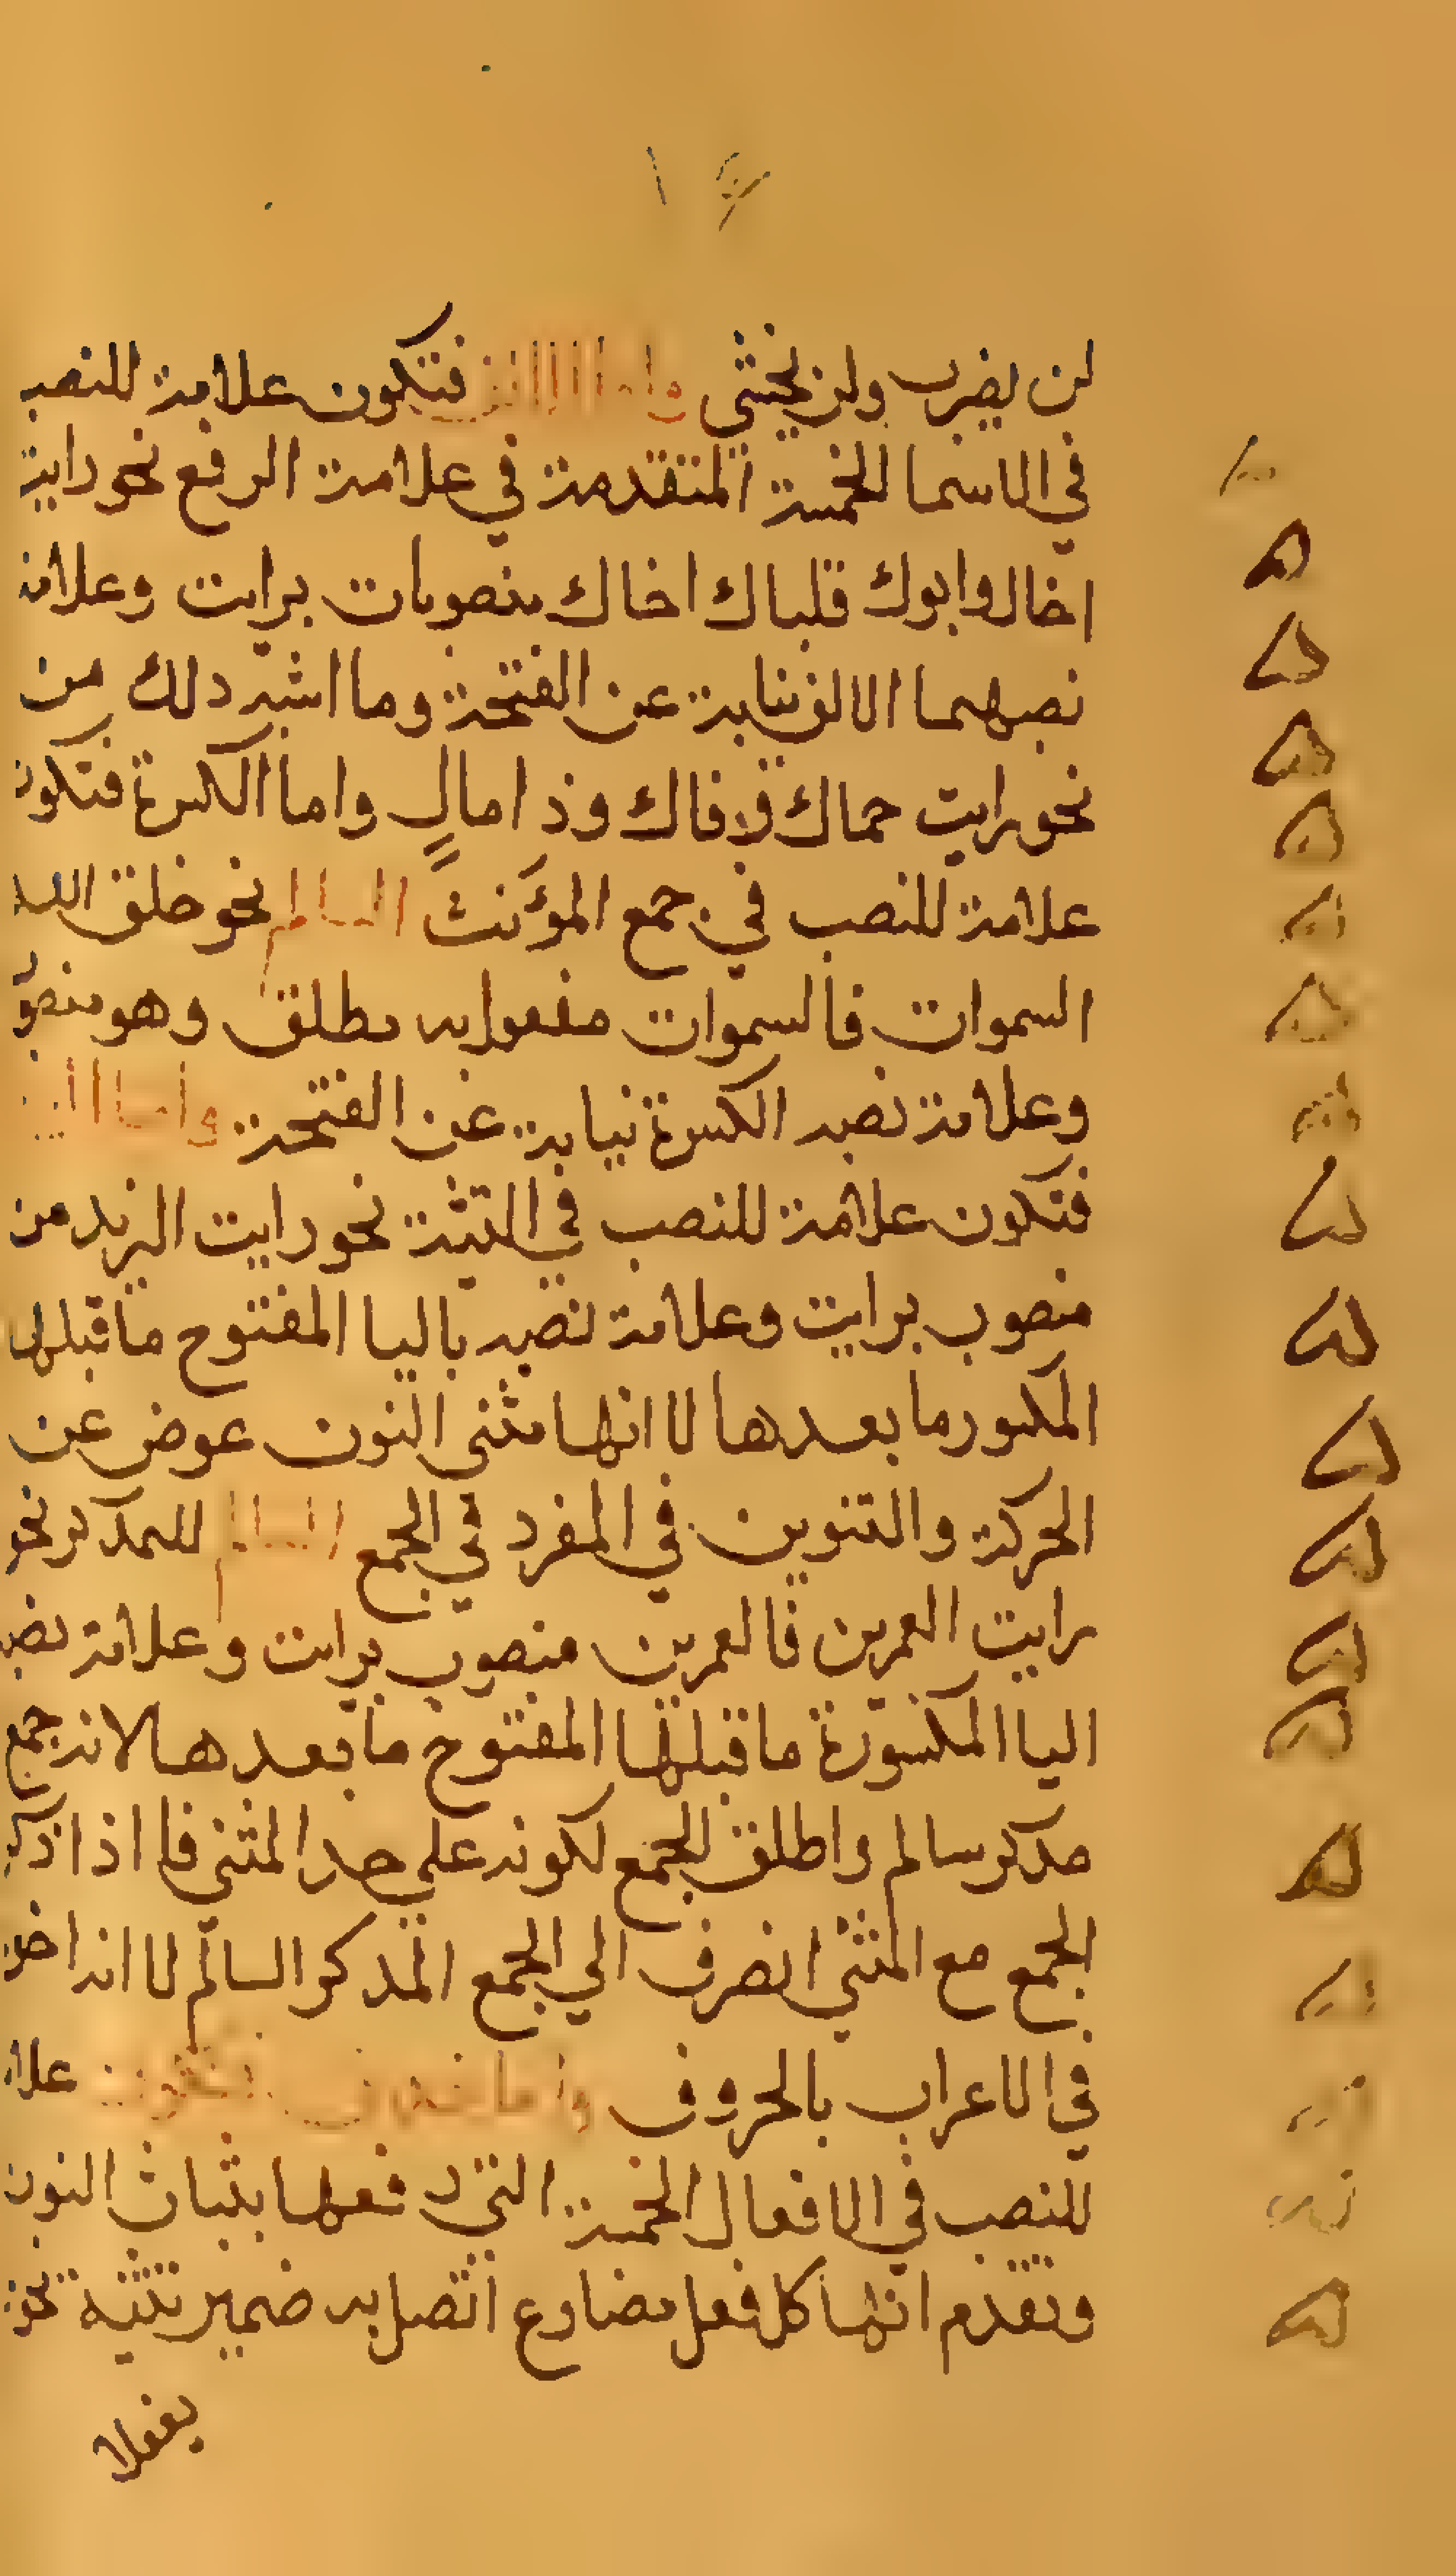 لن يضرب ولن يخشى واما الالف فتكون علامة للنصب
في الاسما الخمسة المتقدمة في علامة الرفع نحو رايت
اخاك وابوك قلباك اخاك منصوبات برايت وعلامة
نصبهما الالف نيابة عن الفتحة وما اشبه دلك من
نحو رايت حماك وفاك وذا مالٍ واما الكسرة فتكون
علامة للنصب في جمع المؤنث السالم نحو خلق الله
السموات فالسموات مفعول به مطلق وهو منصو
وعلامة نصبه الكسرة نيابة عن الفتحة واما اليا
فتكون علامة للنصب في التثنية نحو رايت الزيدين
منصوب برايت وعلامة نصبه باليا المفتوح ماقبلها
المكسور ما بعدها لا انها مثنى النون عوض عن
الحركة والتنوين في المفرد في الجمع السالم للمدكر نحو
رايت العمرين فالعمرين منصوب برايت وعلامة نصبه
اليا المكسورة ما قبلها المفتوح ما بعدها لانه جمع
مدكر سالم واطلق الجمع لكونه على حد المثنى فا اذا ذكر
الجمع مع المثنى انصرف الي الجمع المدكر السالم لا انه اخو
في الاعراب بالحروف واما حذف النون فيكون علامة
للنصب في الافعال الخمسة التي رفعها بثبات النون
وتقدم انها كل فعل مضارع اتصل به ضمير تثنية نحو
يفعلا